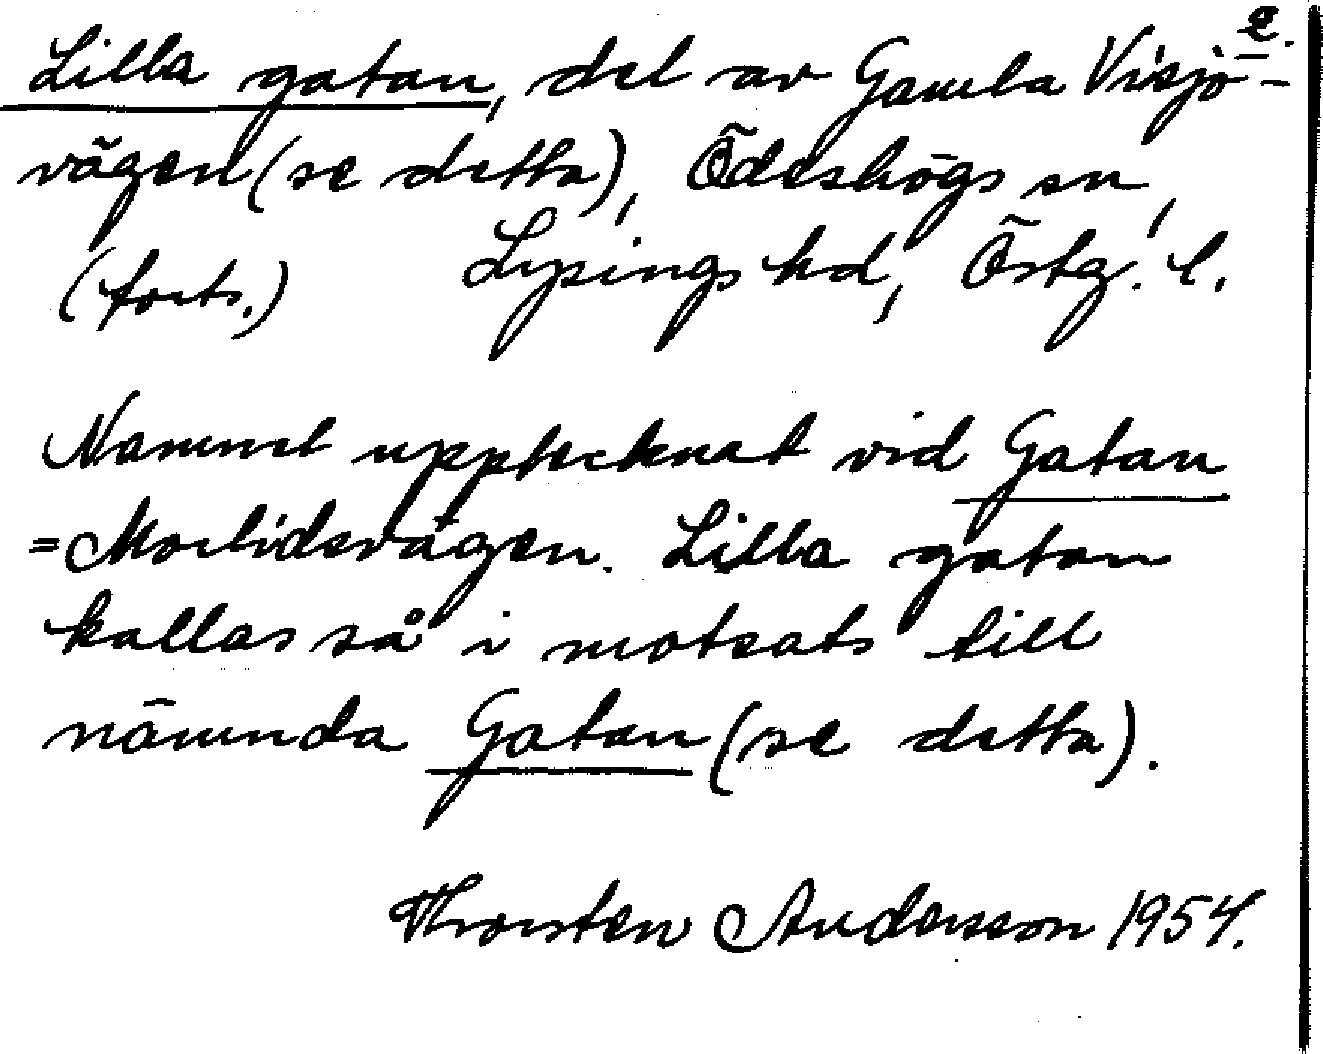 2.
Lilla gatan, del av Gamla Visjö-
vägen (se detta), Ödeshögs sn,
(forts.) Lysings hd, Östg. l.
Namnet upptecknat vid Gatan
= Morlidsvägen. Lilla gatan
kallas så i motsats till
nämnda Gatan (se detta).
Thorsten Andersson 1954.